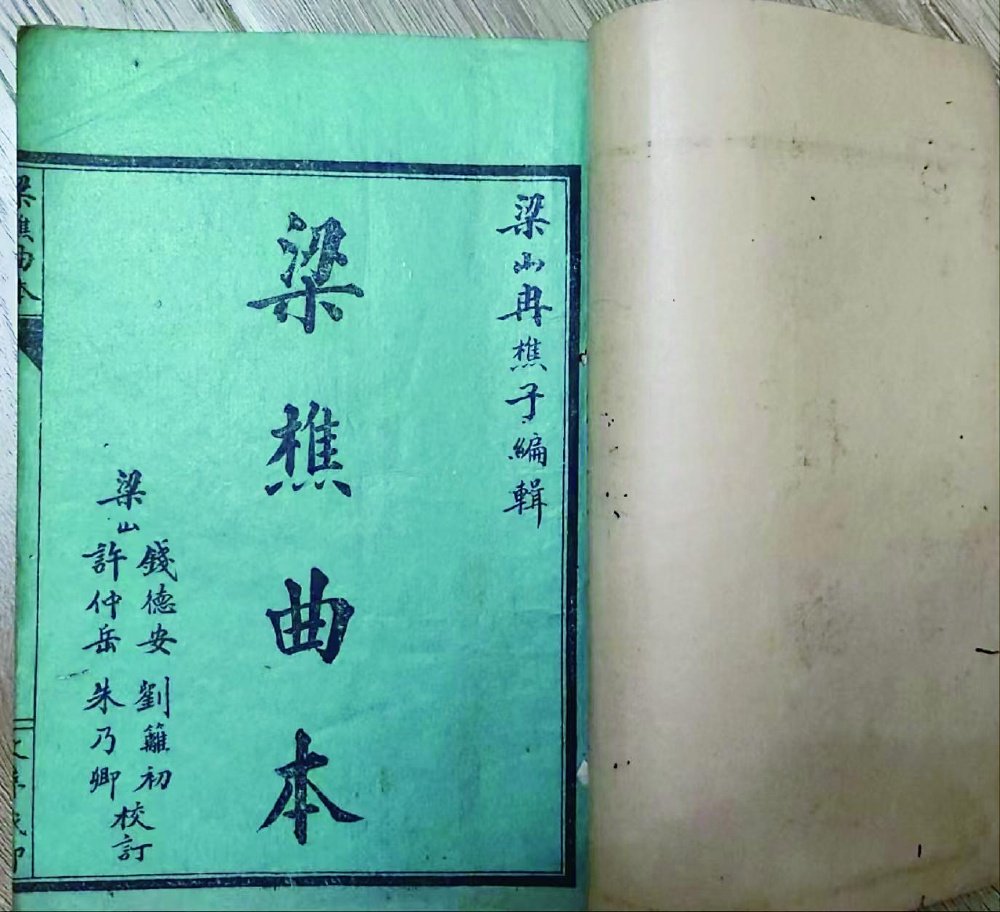 梁山冉樵子編輯
梁樵曲本
梁山
錢德安 劉籬初
許仲岳 朱乃卿
校訂
梁樵曲本